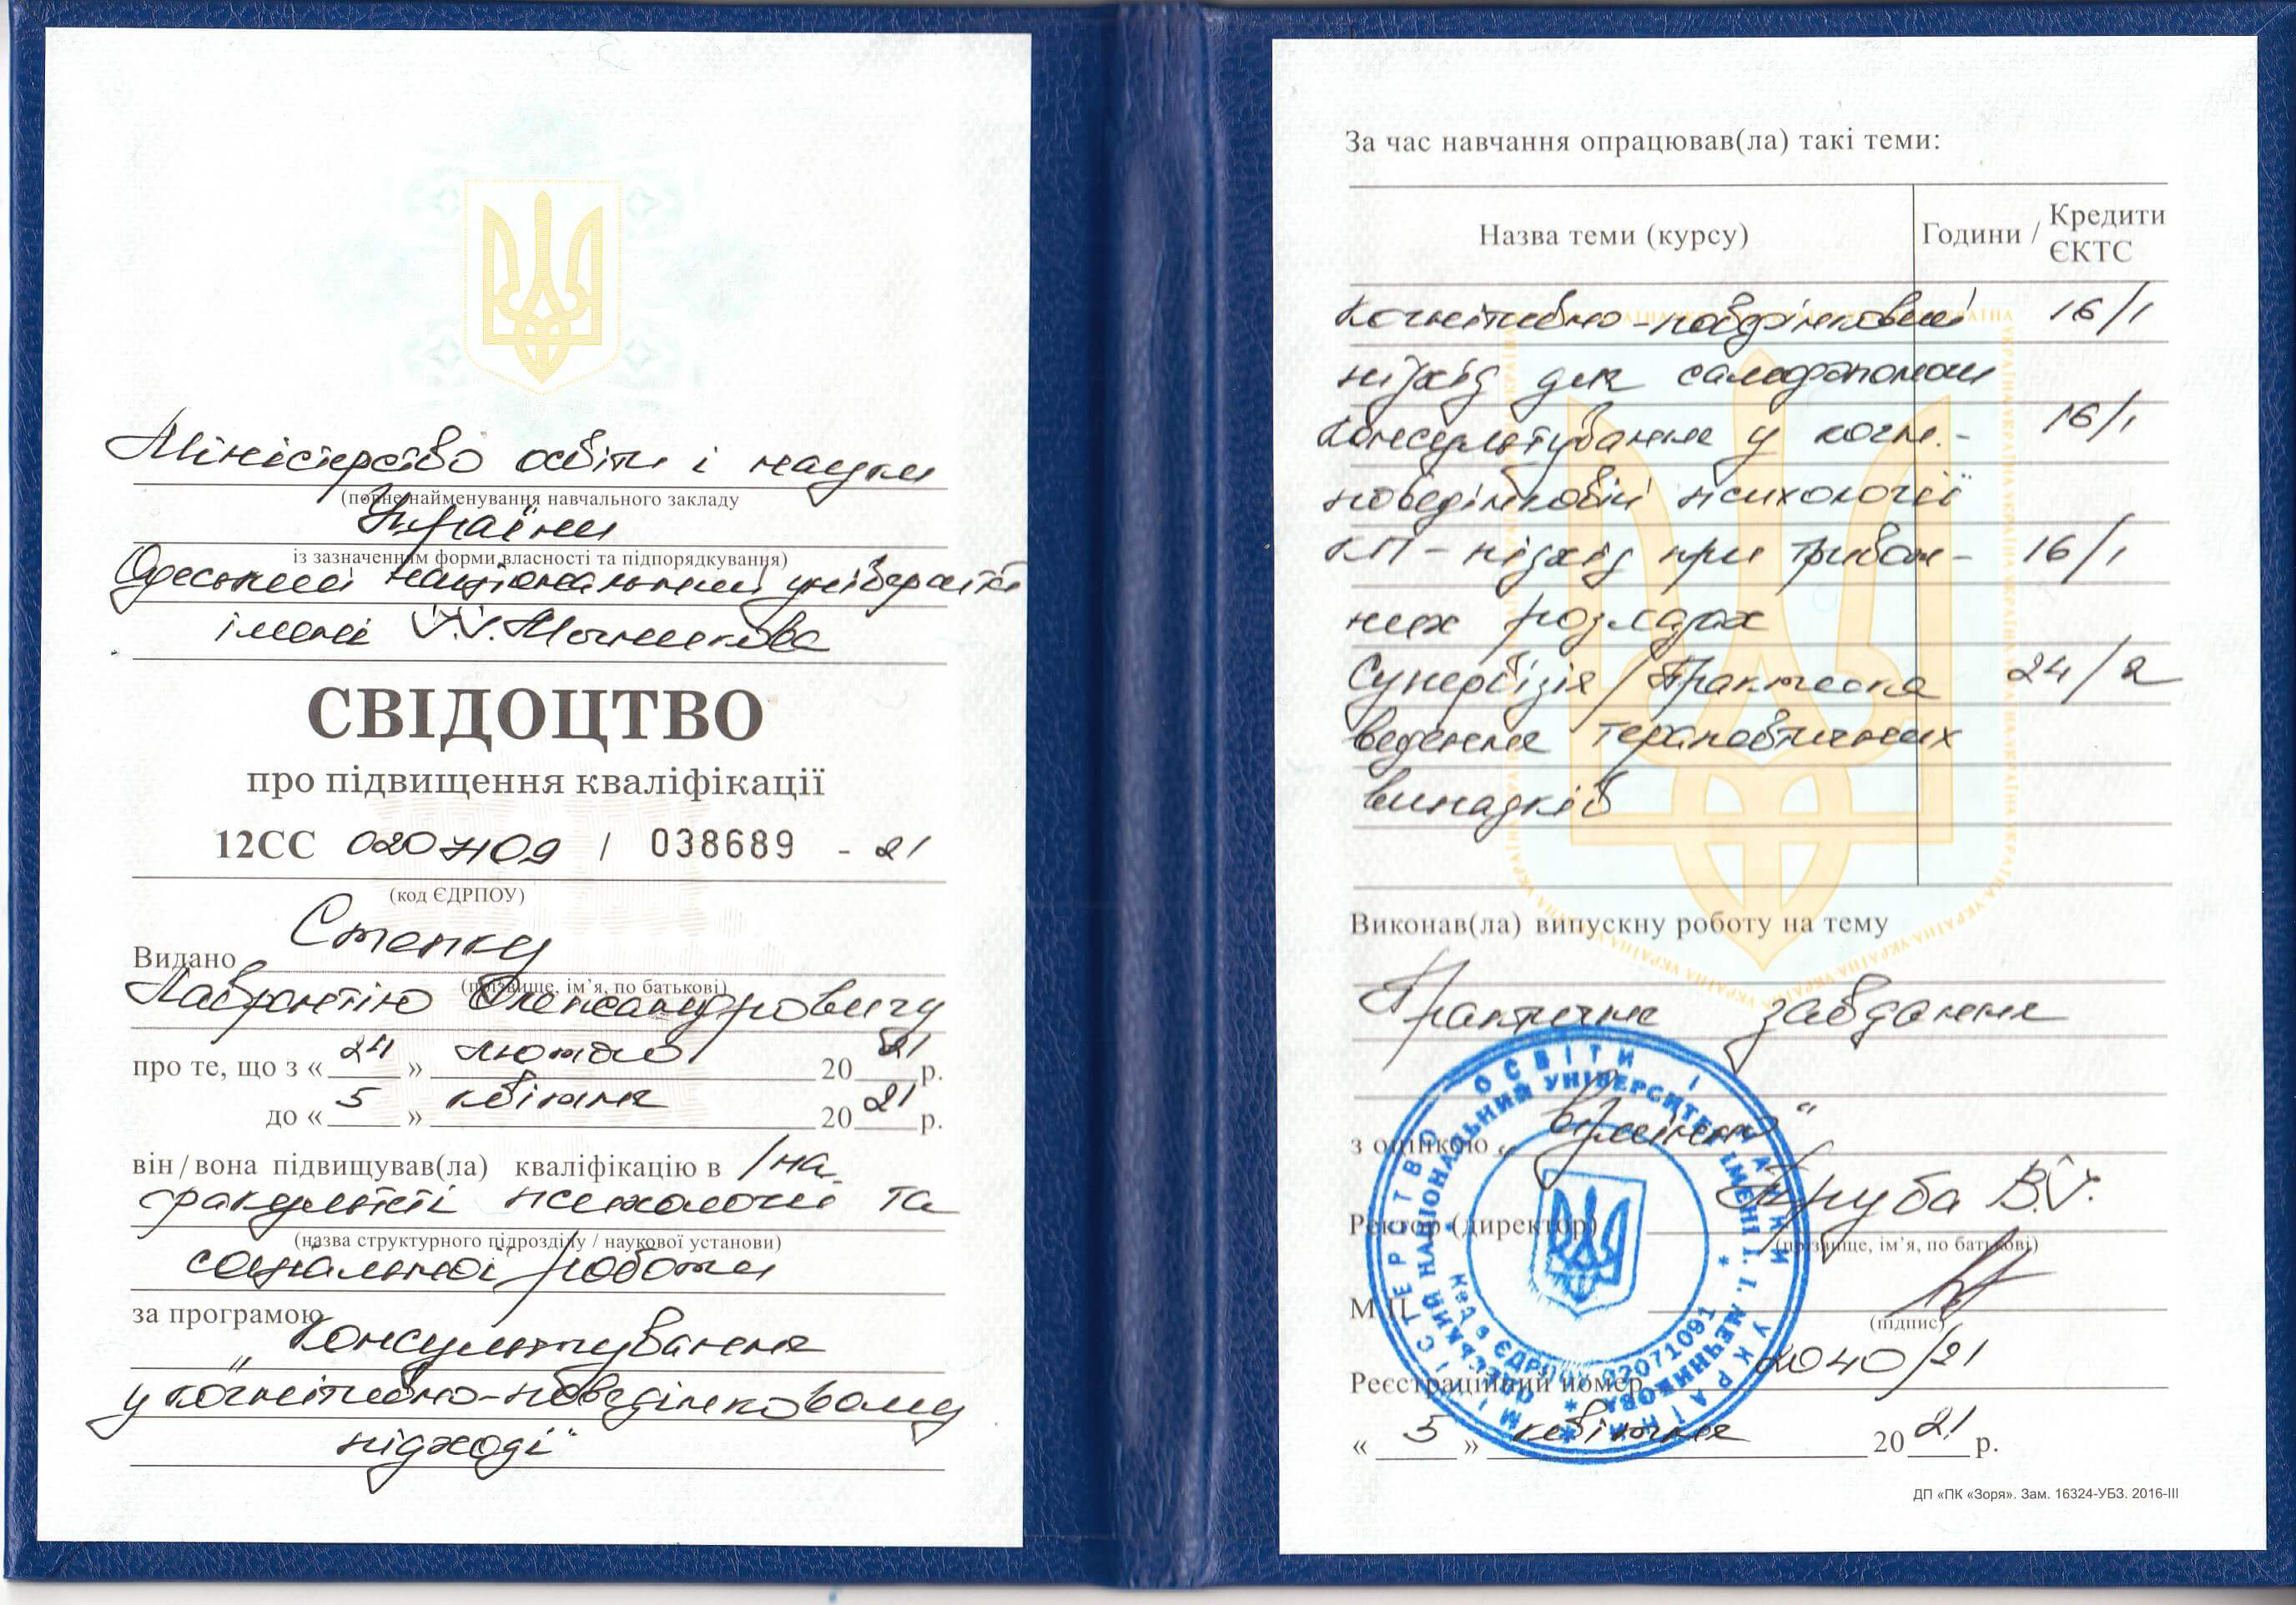 Міністерство освіти і науки
(повне найменування навчального закладу
України
із зазначенням форми власності та підпорядкування)
Одеський національний університет
імені І.І. Мечникова
СВІДОЦТВО
про підвищення кваліфікації
12СС 02071109 / 038689 - 21
(код ЄДРПОУ)
Видано
(прізвище, ім’я, по батькові)
Лаврентію Олександровичу
про те, що з « 24 » лютого 2021 р.
до « 5 » квітня 2021 р.
він/вона підвищував(ла) кваліфікацію в /на
факультеті психології та
(назва структурного підрозділу / наукової установи)
соціальної роботи
за програмою
„Консультування
у когнітивно-поведінковому
підході“
За час навчання опрацював(ла) такі теми:
Назва теми (курсу) Години / Кредити ЄКТС
Когнітивно-поведінковий 16/1
підхід для самодопомоги
Консультування у когн.- 16/1
поведінковій психології
КП - підхід при тривож- 16/1
них розладах
Супервізія/Практика 24/2
ведення терапевтичних
випадків
Виконав(ла) випускну роботу на тему
Практичне завдання
з оцінкою „відмінно“
Ректор (директор) Труба В.І.
(прізвище, ім’я, по батькові)
М.П.
(підпис)
Реєстраційний номер 2040/21
« 5 » квітня 2021 р.
МІНІСТЕРСТВО ОСВІТИ І НАУКИ УКРАЇНИ
ОДЕСЬКИЙ НАЦІОНАЛЬНИЙ УНІВЕРСИТЕТ ІМЕНІ І. І. МЕЧНИКОВА
Код в ЄДРПОУ 02071091
ДП «ПК «Зоря». Зам. 16324-УБЗ. 2016-III